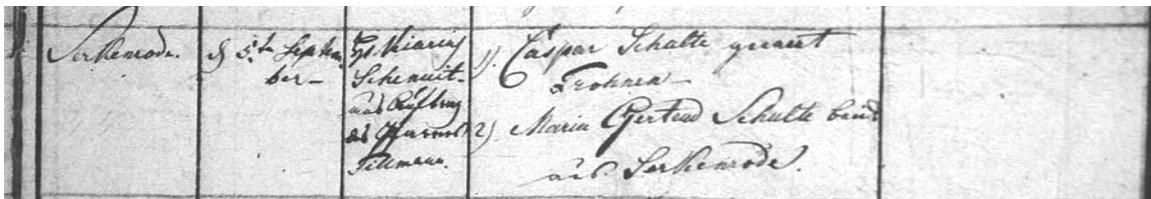 Serkenrode.
d 5ten Septem
ber _
H. Vicarius
Schmuit
aus Auftrag
des Pfarrers
Tillmann.
1). Caspar Schulte genannt
Trohnen
2) Maria Gertrud Schulte beide
aus Serkenrode.